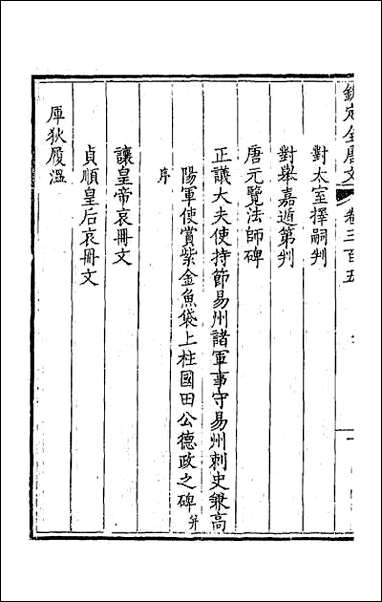 欽定全唐文 卷三百五
對太室擇嗣判
對舉嘉遁第判
唐元覽法師碑
正議大夫使持節易州諸軍事守易州刺史兼高
陽軍使賞紫金魚袋上柱國田公德政之碑并
序
讓皇帝哀冊文
貞順皇后哀冊文
厙狄履溫